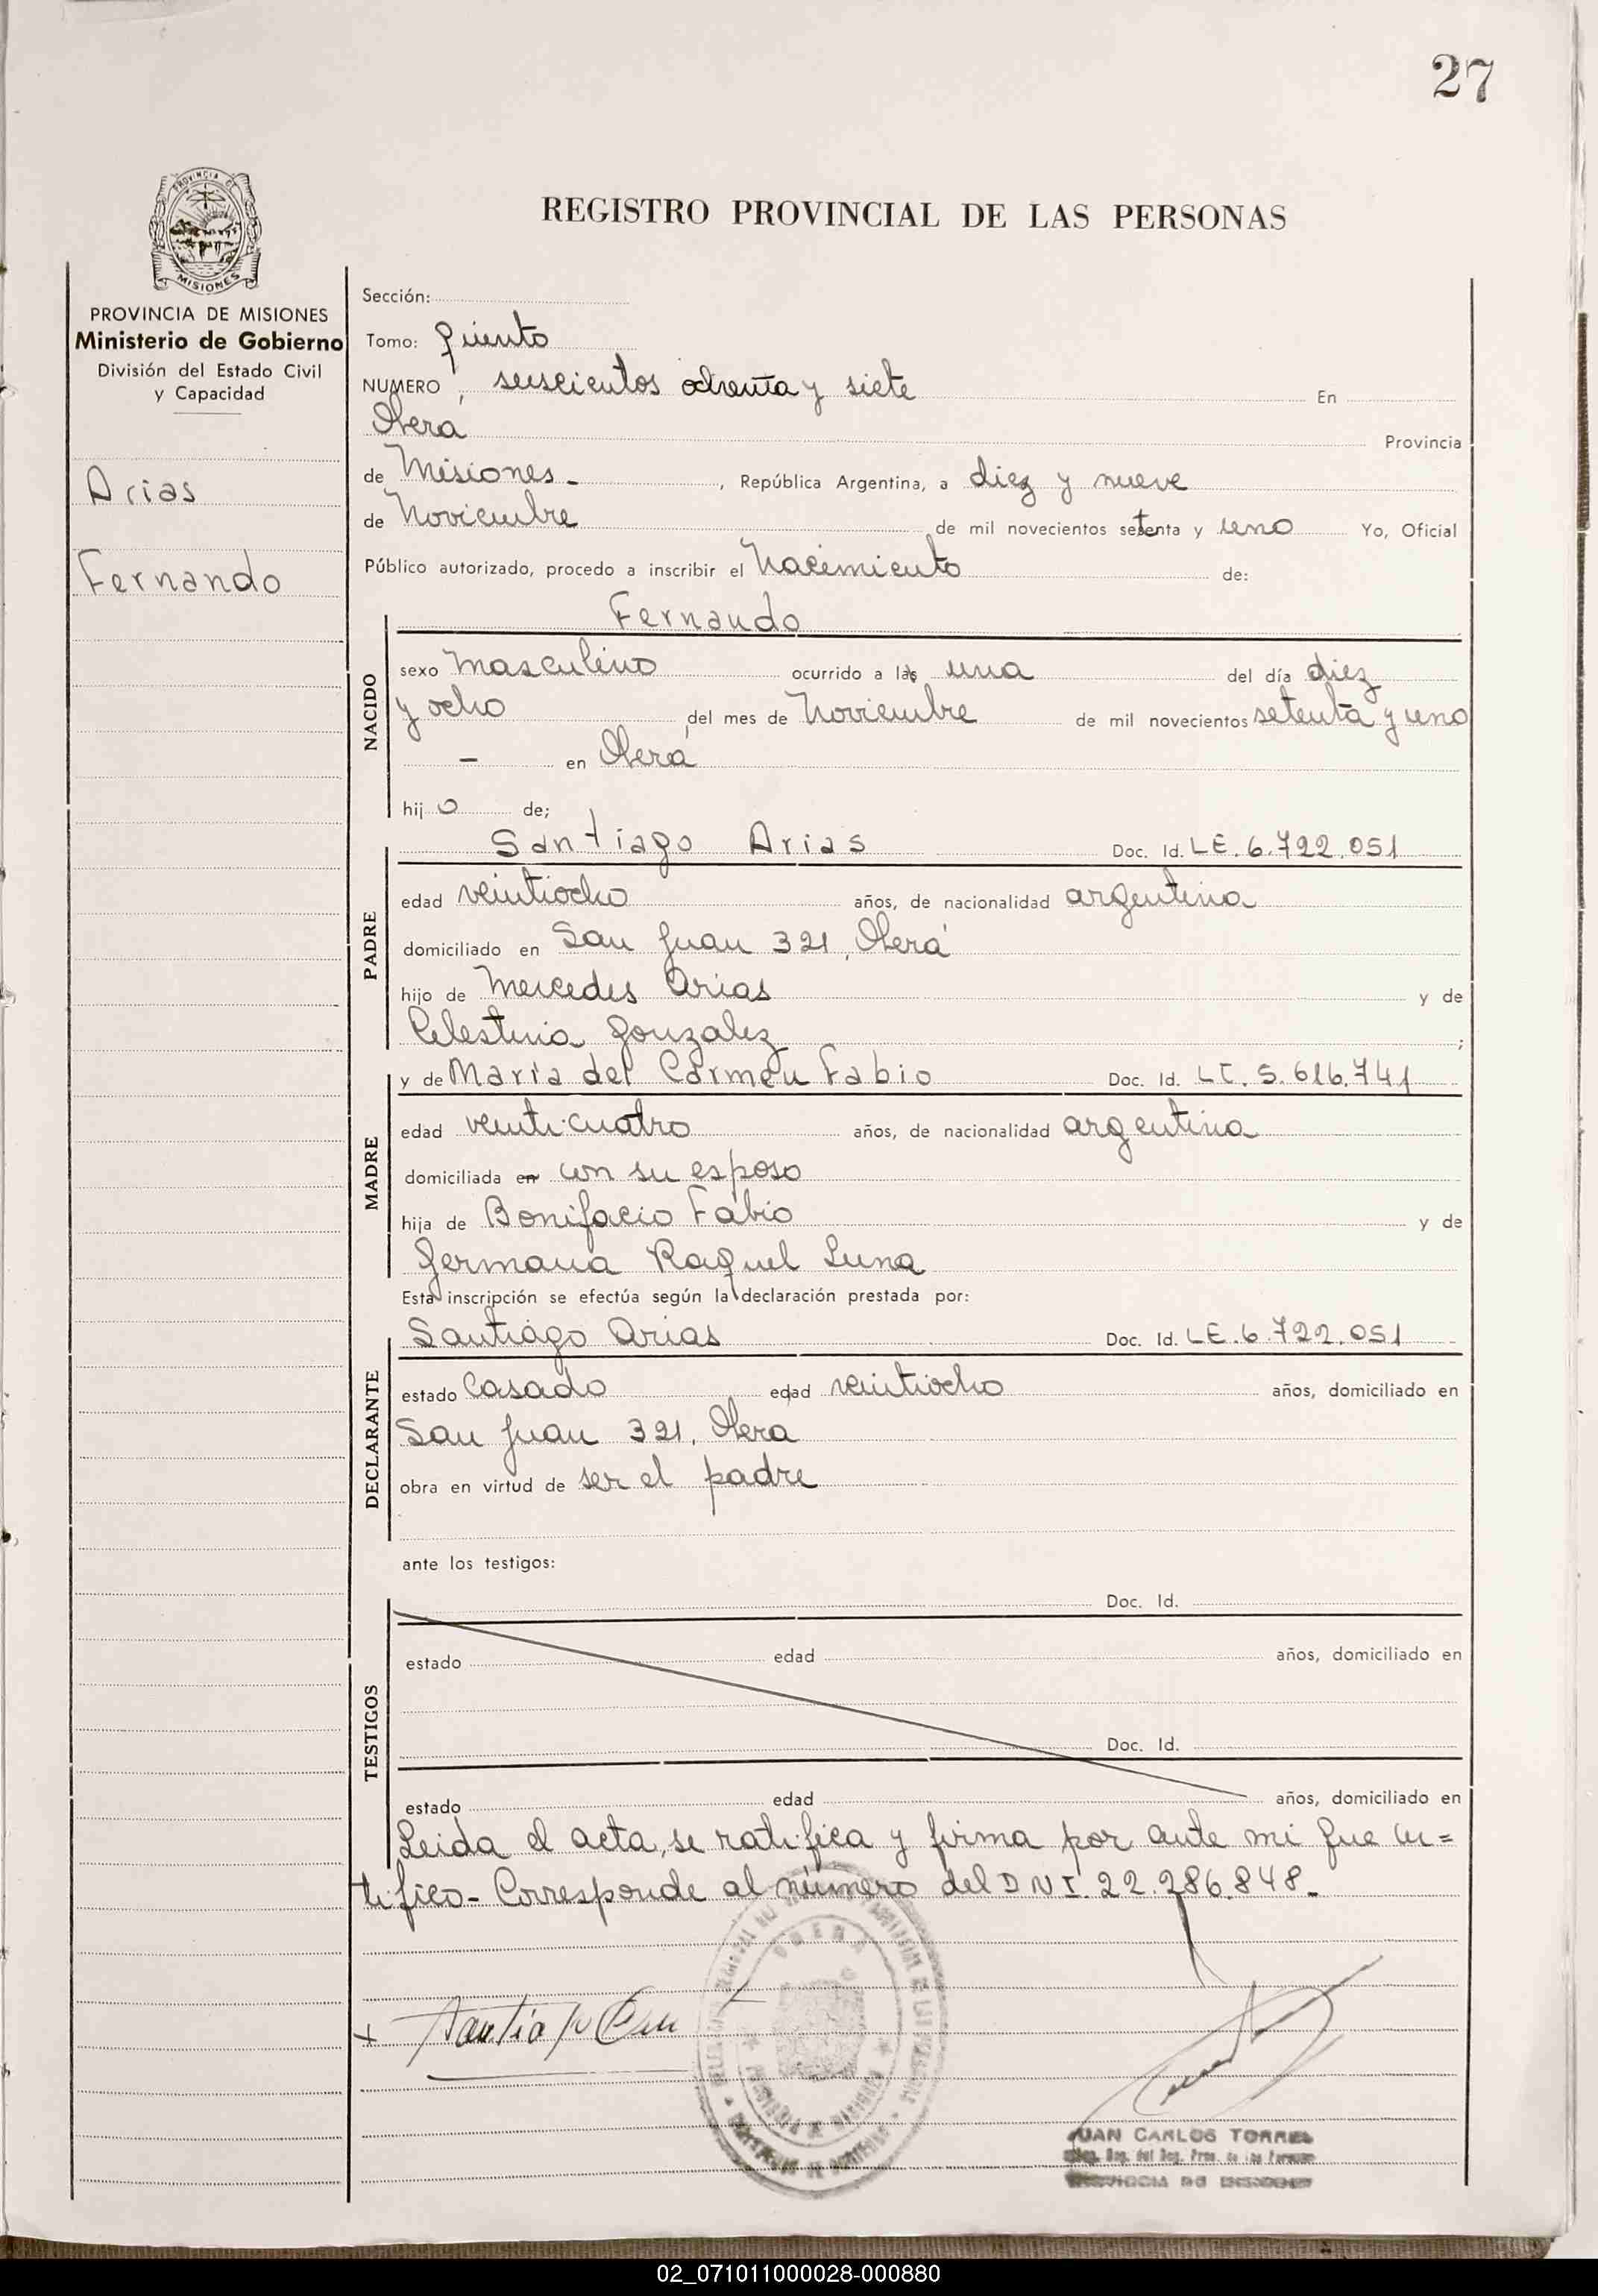 27
PROVINCIA DE
MISIONES
REGISTRO PROVINCIAL DE LAS PERSONAS
PROVINCIA DE MISIONES
Ministerio de Gobierno
División del Estado Civil
y Capacidad
Arias
Fernando
Sección:
Tomo: Quinto
NUMERO, seiscientos ochenta y siete En
Oberá Provincia
de Misiones - , República Argentina, a diez y nueve
de Noviembre de mil novecientos setenta y uno Yo, Oficial
Público autorizado, procedo a inscribir el Nacimiento de:
NACIDO
Fernando
sexo Masculino ocurrido a las una del día diez
y ocho del mes de Noviembre de mil novecientos setenta y uno
- en Oberá
hijo de;
PADRE
Santiago Arias Doc. Id. LE. 6.722.051
edad veintiocho años, de nacionalidad argentina
domiciliado en San Juan 321, Oberá
hijo de Mercedes Arias y de
Celestina Gonzalez ;
MADRE
y de María del Carmen Fabio Doc. Id. LC. 5.616.741
edad veinticuatro años, de nacionalidad argentina
domiciliada en con su esposo
hija de Bonifacio Fabio y de
Germana Raquel Luna
Esta inscripción se efectúa según la declaración prestada por:
DECLARANTE
Santiago Arias Doc. Id. LE. 6.722.051
estado Casado edad veintiocho años, domiciliado en
San Juan 321, Oberá
obra en virtud de ser el padre
ante los testigos:
TESTIGOS
Doc. Id.
estado edad años, domiciliado en
Doc. Id.
estado edad años, domiciliado en
Leida el acta, se ratifica y firma por ante mi que cer=
tifico - Corresponde al número del DNI. 22.286.848 -
OBERA
JUAN CARLOS TORRES
02_071011000028-000880